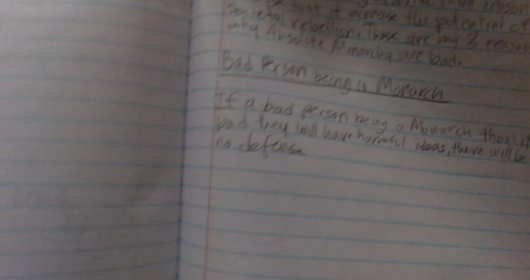 it increase the potential
Societal rebellion. Those are my 3 reason
why Absolute Monarchy are bad.
Bad Person being a Monarch
If a bad person being a Monarch that is
bad they will have harmful ideas, there will be
no defense